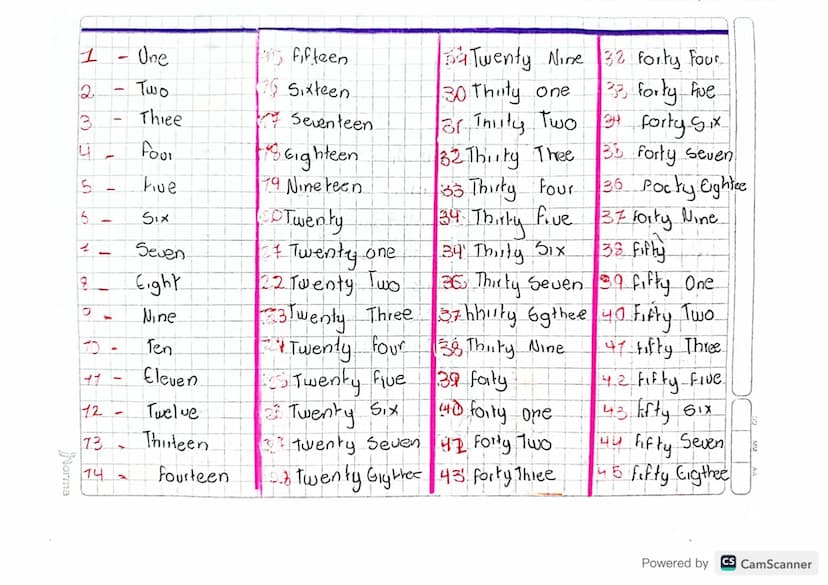 1 - One
2 - Two
3 - Three
4 - Four
5 - Five
6 - Six
7 - Seven
8 - Eight
9 - Nine
10 - Ten
11 - Eleven
12 - Twelve
13 - Thirteen
14 - Fourteen
15 Fifteen
16 Sixteen
17 Seventeen
18 Eighteen
19 Nineteen
20 Twenty
21 Twenty one
22 Twenty Two
23 Twenty Three
24 Twenty four
25 Twenty Five
Twenty Six
27 Twenty Seven
28 Twenty Eigthee
Twenty Nine
30 Thirty one
31 Thirty Two
32 Thirty Three
33 Thirty four
34 Thirty five
34 Thirty Six
36 Thirty Seven
37 hhirty Egthee
38 Thirty Nine
39 forty
40 forty one
42 Forty Two
43 Forty Three
32 Forty Four
33 forty five
34 forty six
35 Forty Seven
36 Focty Eightee
37 Forty Nine
38 Fifty
39 fifty One
40 Fifty Two
41 fifty Three
42 Fifty Five
43 fifty six
44 fifty Seven
45 fifty Eigthee
Norma
Powered by CS CamScanner